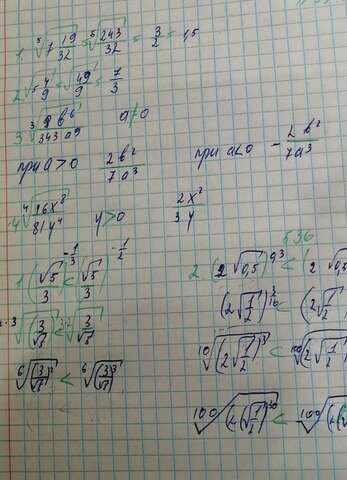 1. ⁵√7 19/32 = ⁵√243/32 = 3/2 = 1,5
2 √5 4/9 = √49/9 = 7/3
3 ³√8b⁶/343a⁹ a≠0
при a>0 2b²/7a³ при a<0 - 2b²/7a³
4 ⁴√16x⁸/81y⁴ y>0 2x²/3y
536
1 (√5/3)^(-1/3) < (√5/3)^(-1/2)
2 (2√0,5)^0,3 < (2√0,5
³√(3/√5) < ²√(3/√5)
(2√1/2)^(3/10) < (2√1/2
⁶√(3/√5)² < ⁶√(3/√5)³
¹⁰√(2√1/2)³ < ¹⁰⁰√(2√1/2)
¹⁰⁰√(2√1/2)³⁰ < ¹⁰⁰√(2